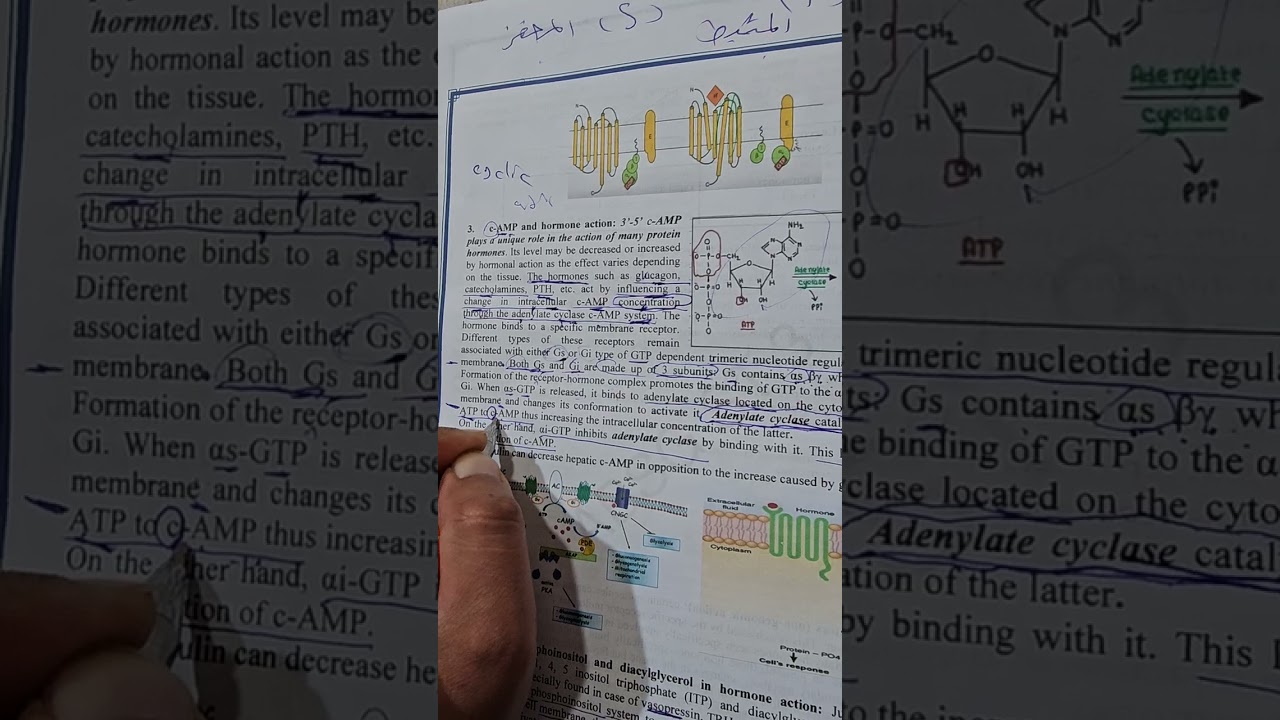 المثبط (S) المحفز
cyclic
3. c-AMP and hormone action: 3'-5' c-AMP
plays a unique role in the action of many protein
hormones. Its level may be decreased or increased
by hormonal action as the effect varies depending
on the tissue. The hormones such as glucagon,
catecholamines, PTH, etc. act by influencing a
change in intracellular c-AMP concentration
through the adenylate cyclase c-AMP system. The
hormone binds to a specific membrane receptor.
Different types of these receptors remain
associated with either Gs or Gi type of GTP dependent trimeric nucleotide regul
membrane. Both Gs and Gi are made up of 3 subunits? Gs contains αs βγ wh
Formation of the receptor-hormone complex promotes the binding of GTP to the α
Gi. When αs-GTP is released, it binds to adenylate cyclase located on the cyto
membrane and changes its conformation to activate it. Adenylate cyclase catal
ATP to c-AMP thus increasing the intracellular concentration of the latter.
On the other hand, αi-GTP inhibits adenylate cyclase by binding with it. This
tion of c-AMP.
ulin can decrease hepatic c-AMP in opposition to the increase caused by g
NH₂
CH₂
OH
OH
H
H
ATP
Adenylate
cyclase
PPi
AC
cAMP
CNGC
PKA
Glycolysis
Extracellular
fluid
Hormone
Cytoplasm
Protein – PO4
Cell's response
phoinositol and diacylglycerol in hormone action:
, 4, 5 inositol triphosphate (ITP) and diacylgly
ecially found in case of vasopressin, TRH
phosphoinositol system to